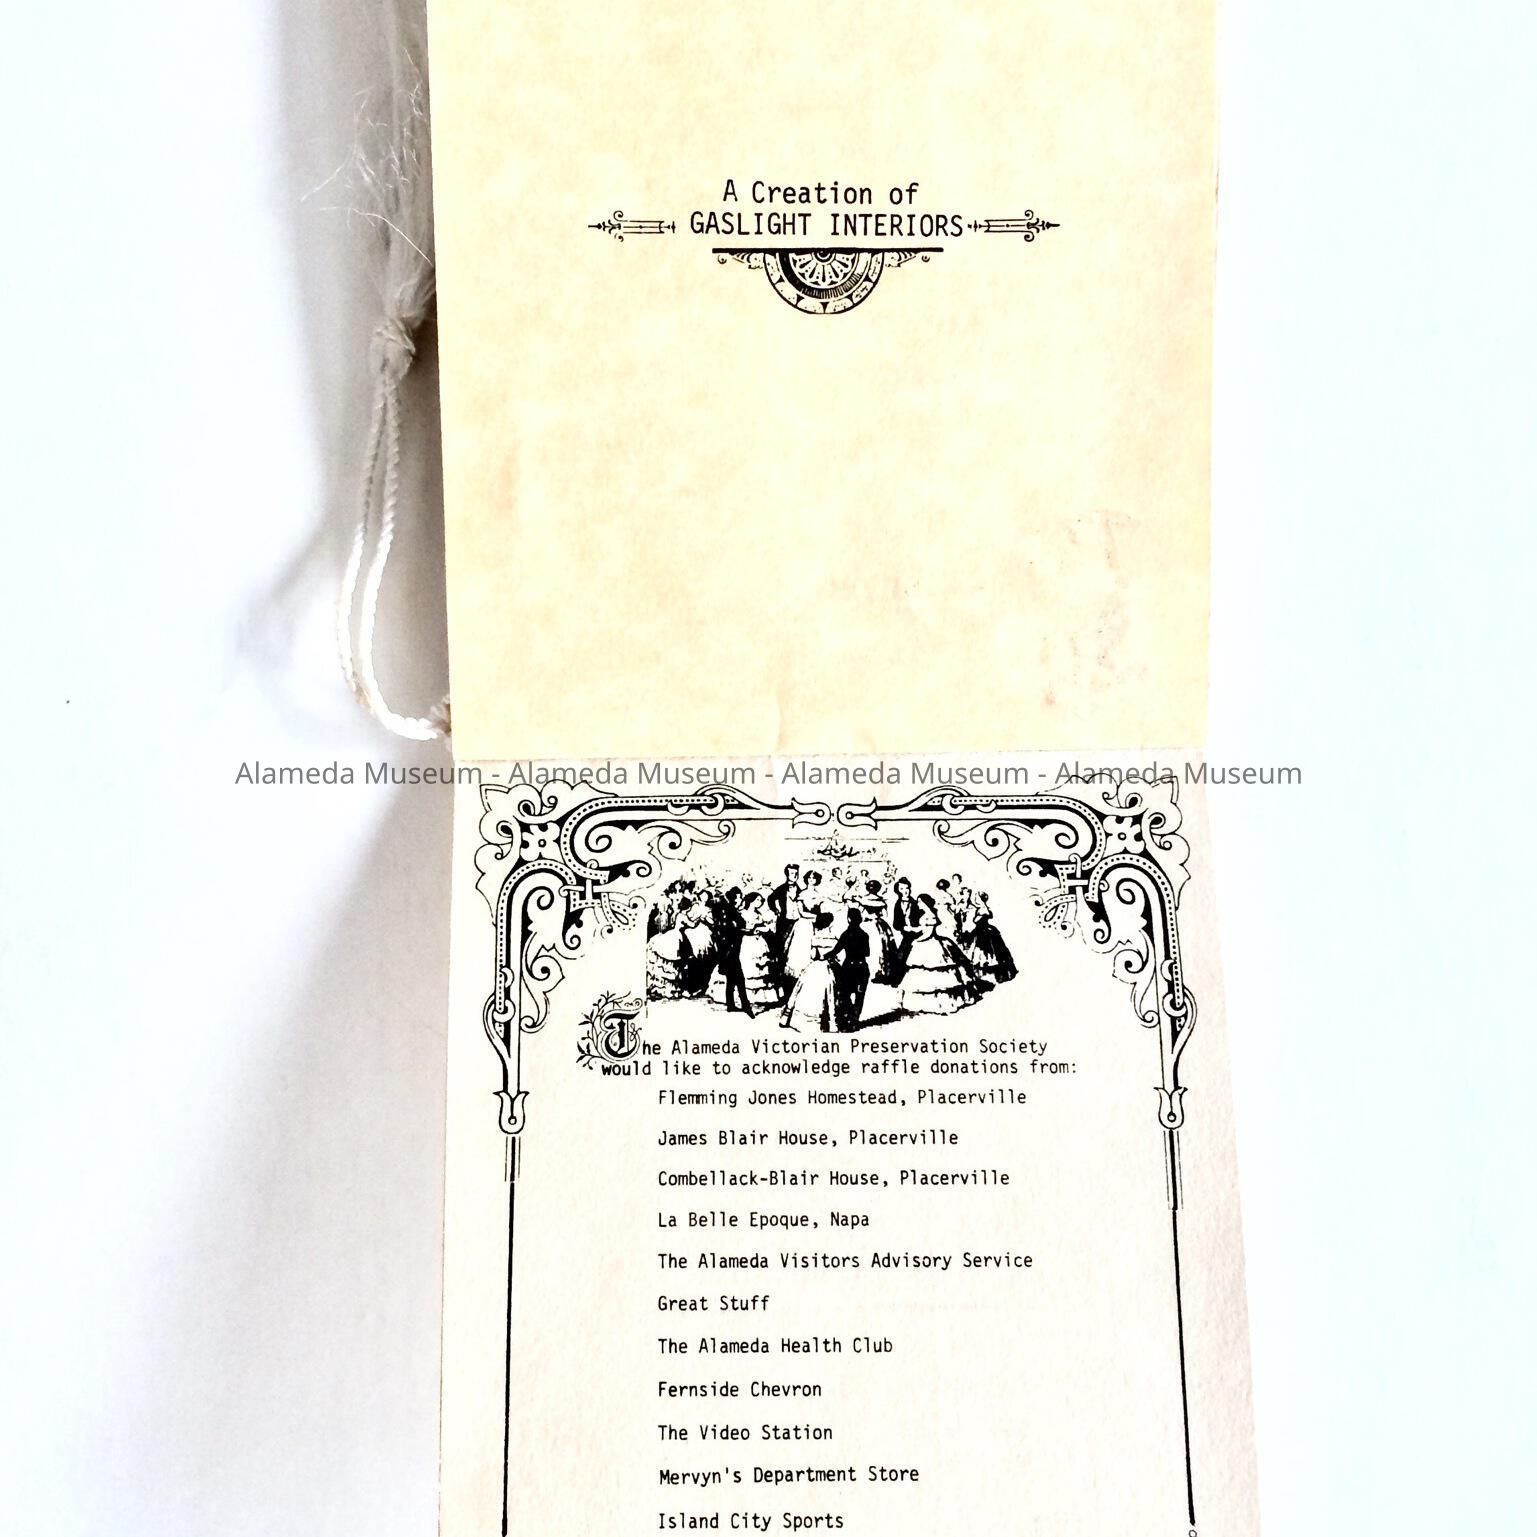 A Creation of
GASLIGHT INTERIORS
Alameda Museum - Alameda Museum - Alameda Museum - Alameda Museum
The Alameda Victorian Preservation Society
would like to acknowledge raffle donations from:
Flemming Jones Homestead, Placerville
James Blair House, Placerville
Combellack-Blair House, Placerville
La Belle Epoque, Napa
The Alameda Visitors Advisory Service
Great Stuff
The Alameda Health Club
Fernside Chevron
The Video Station
Mervyn's Department Store
Island City Sports